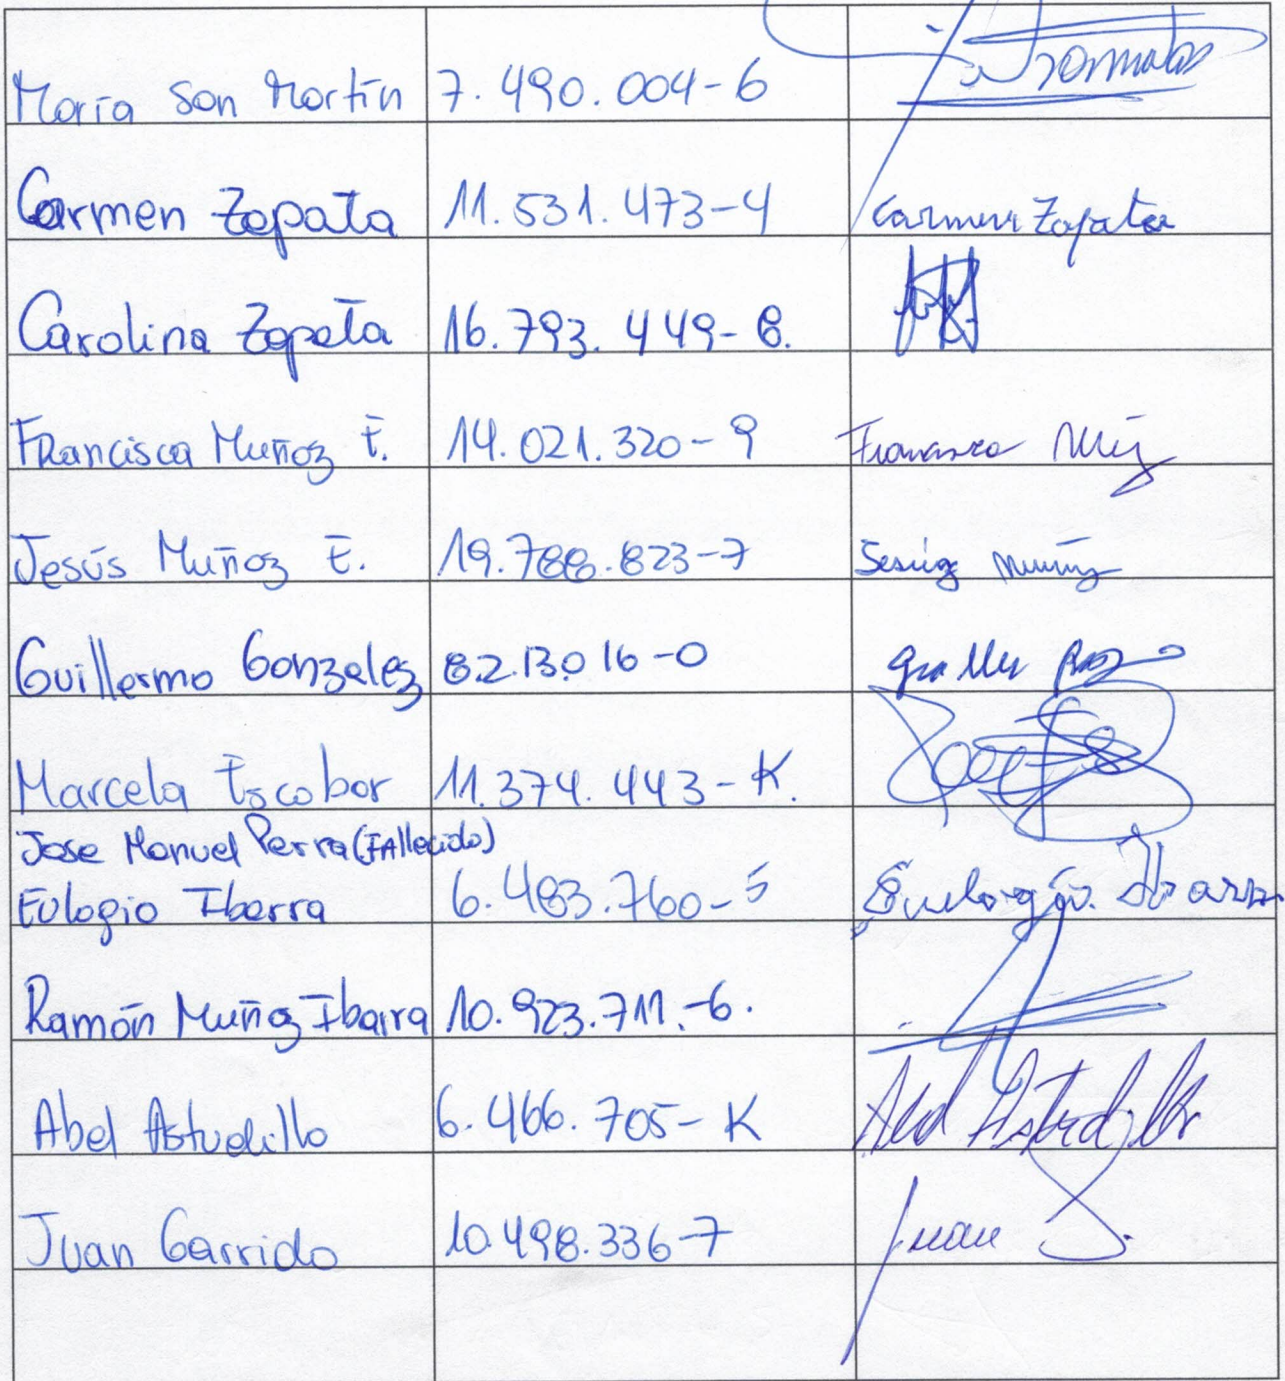 María San Martín 7.490.004-6
Carmen Zapata 11.531.473-4 Carmen Zapata
Carolina Zapata 16.793.449-8.
Francisca Muñoz E. 14.021.320-9 Francisca
Jesús Muñoz E. 19.788.823-7
Guillermo Gonzalez 8.213.016-0
Marcela Escobar 11.374.443-K.
Jose Manuel Perra (FAllecido)
Eulogio Ibarra 6.483.760-5 Eulogio Ibarra
Ramón Muñoz Ibarra 10.923.711.-6.
Abel Astudillo 6.466.705-K Abel Astudillo
Juan Garrido 10.498.336-7 Juan G.